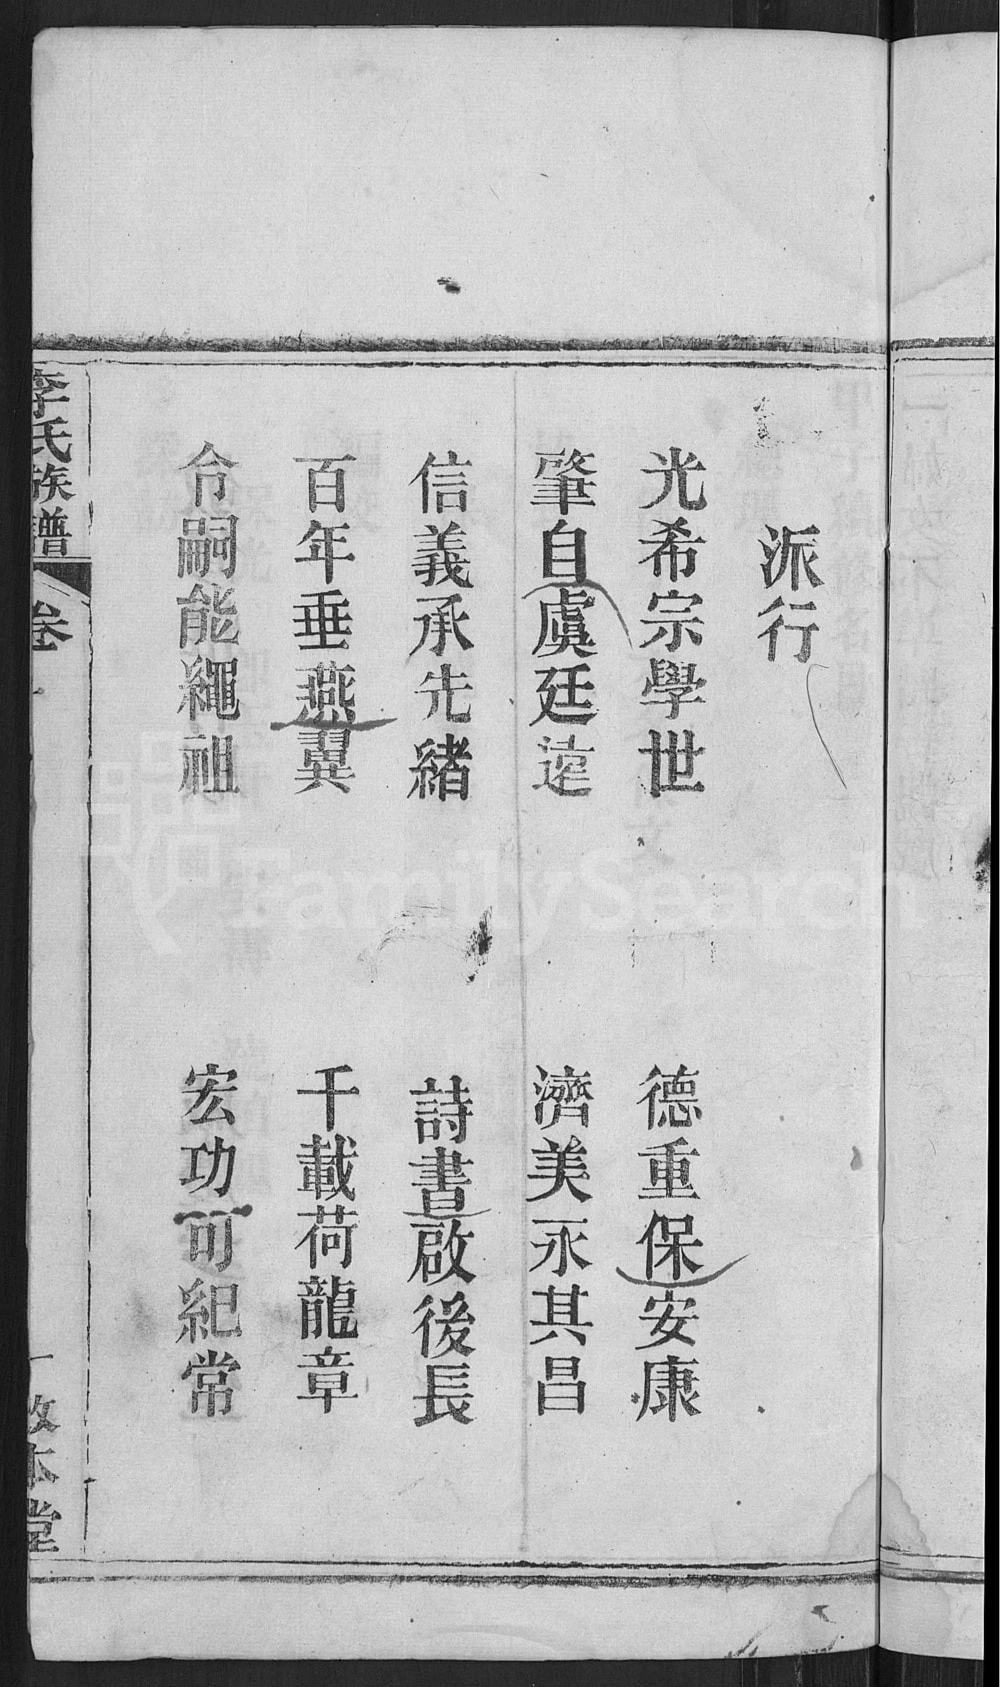 派行
光希宗學世 德重保安康
肇自虞廷遠 濟美永其昌
信義承先緒 詩書啟後長
百年垂燕翼 千載荷龍章
令嗣能繩祖 宏功可紀常
李氏族譜 卷一 一 敦本堂
FamilySearch